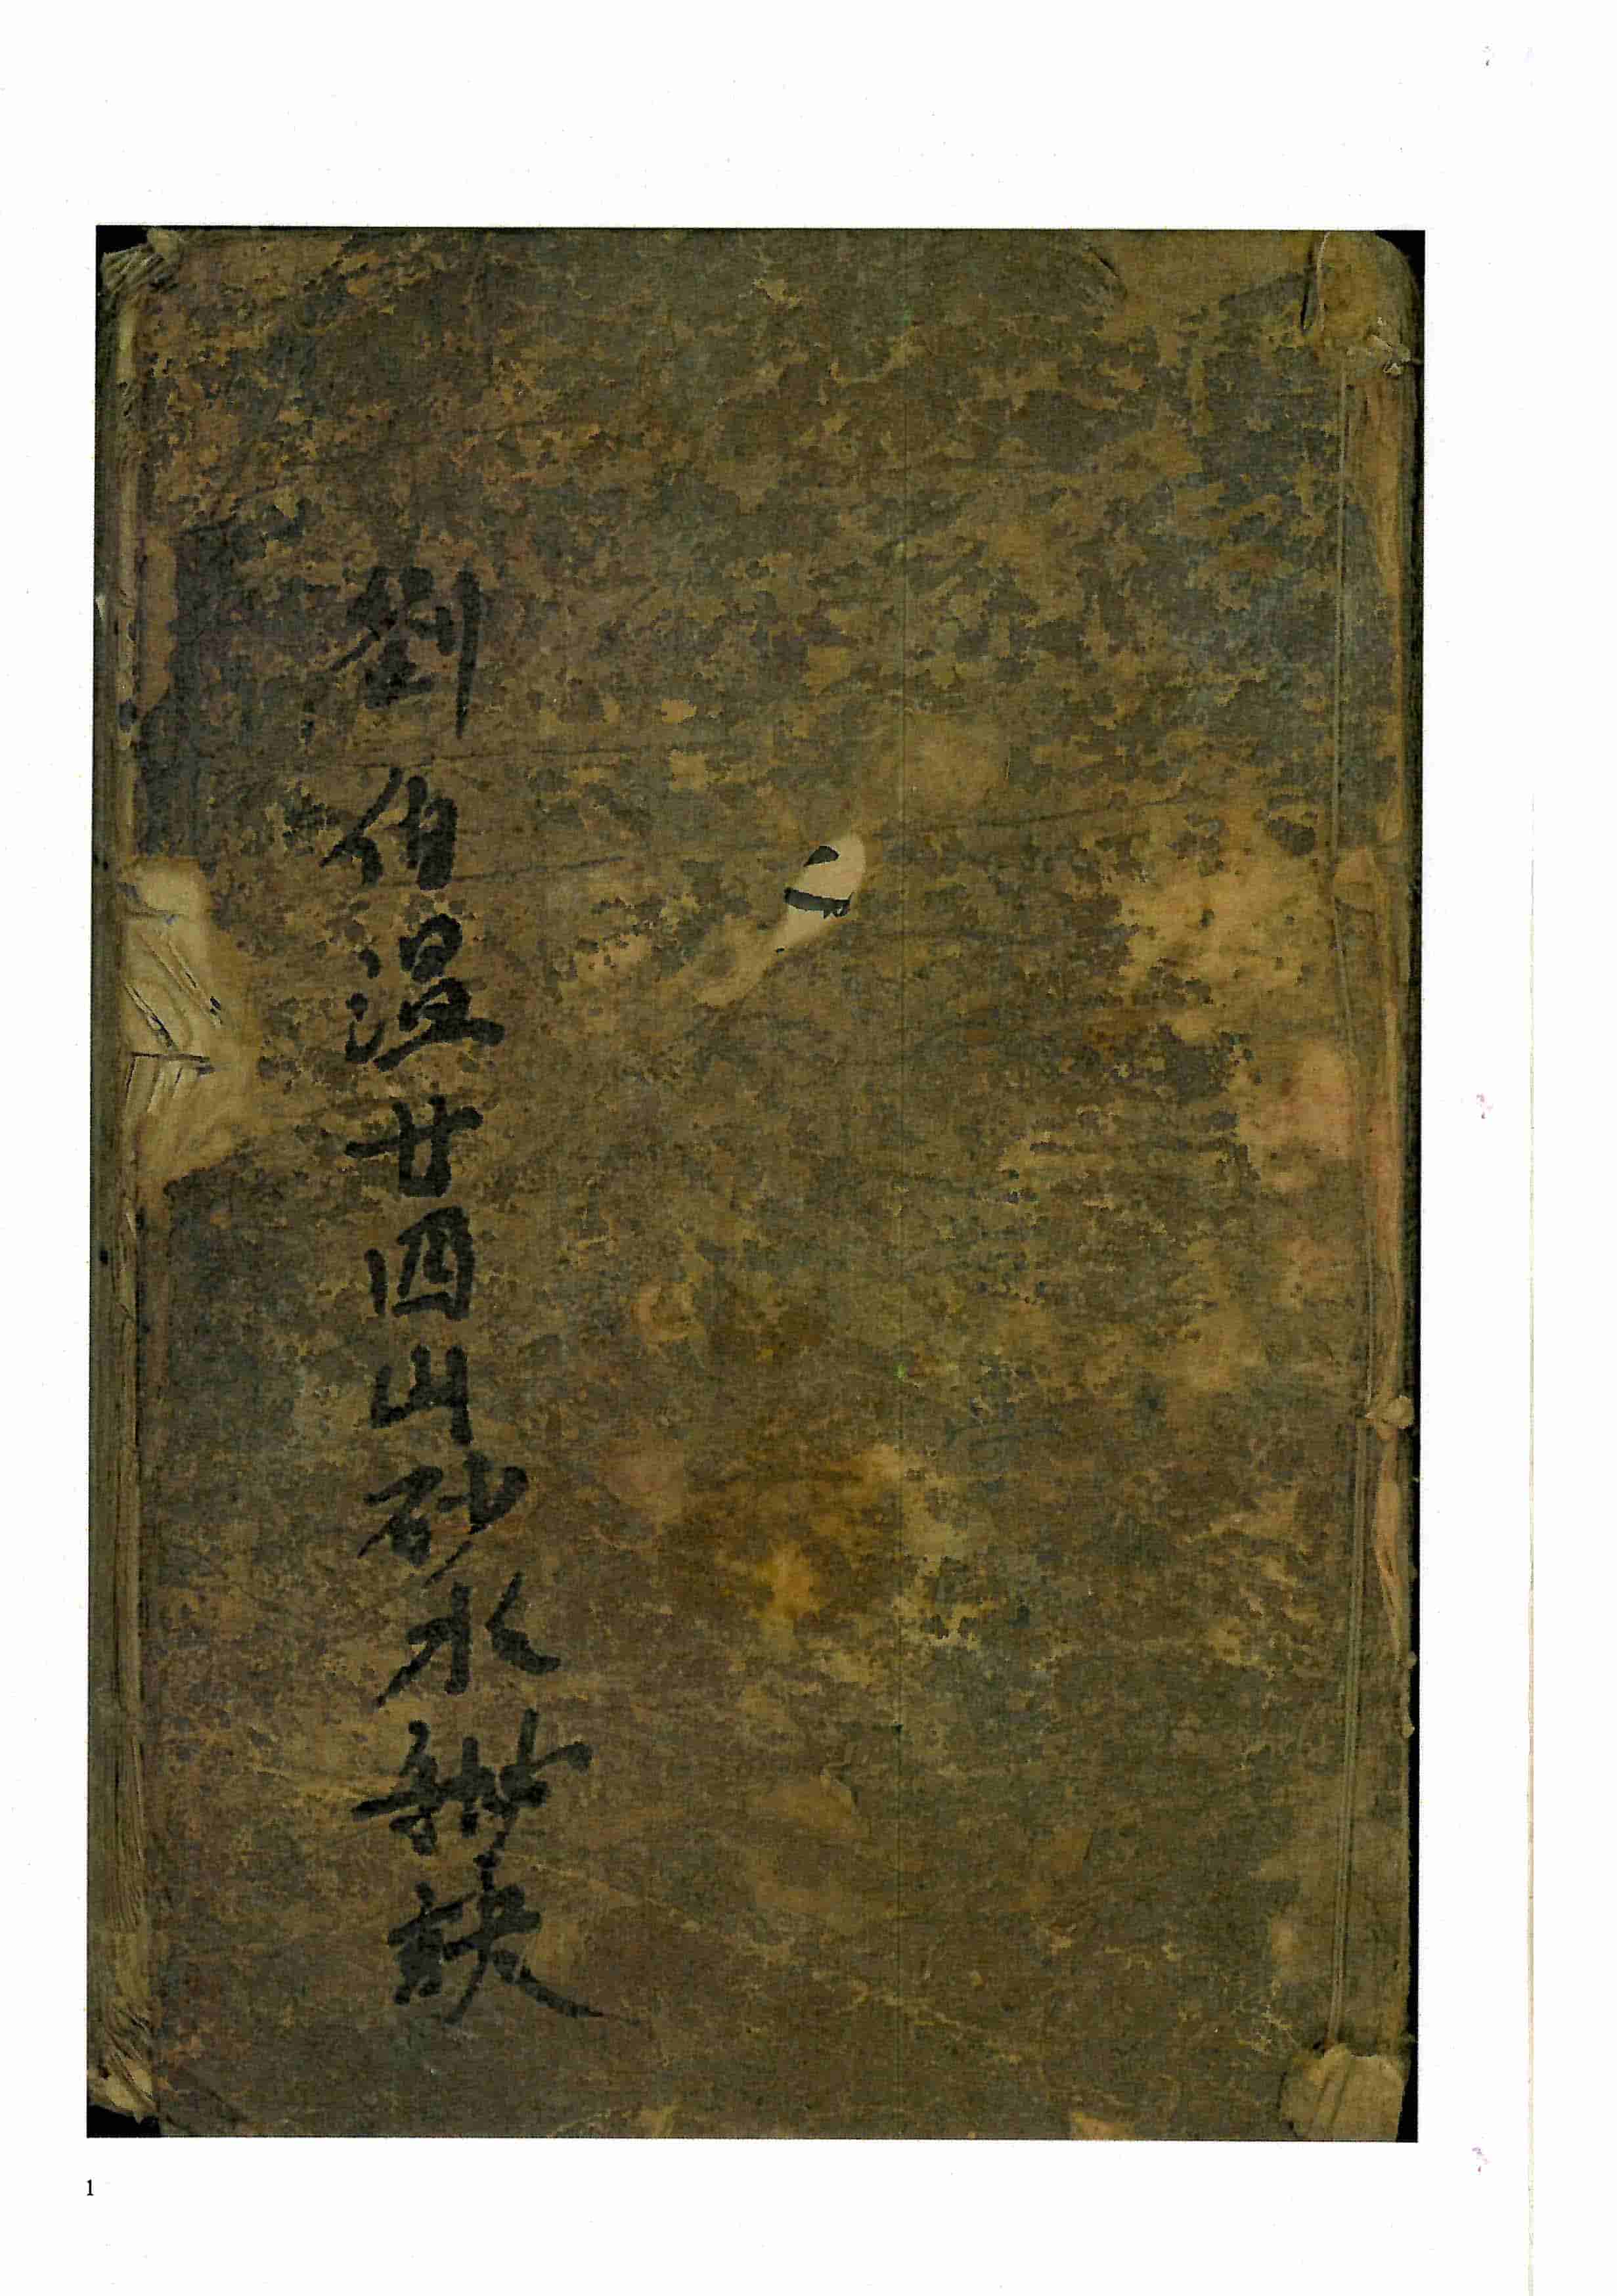 劉伯温廿四山砂水訣
1